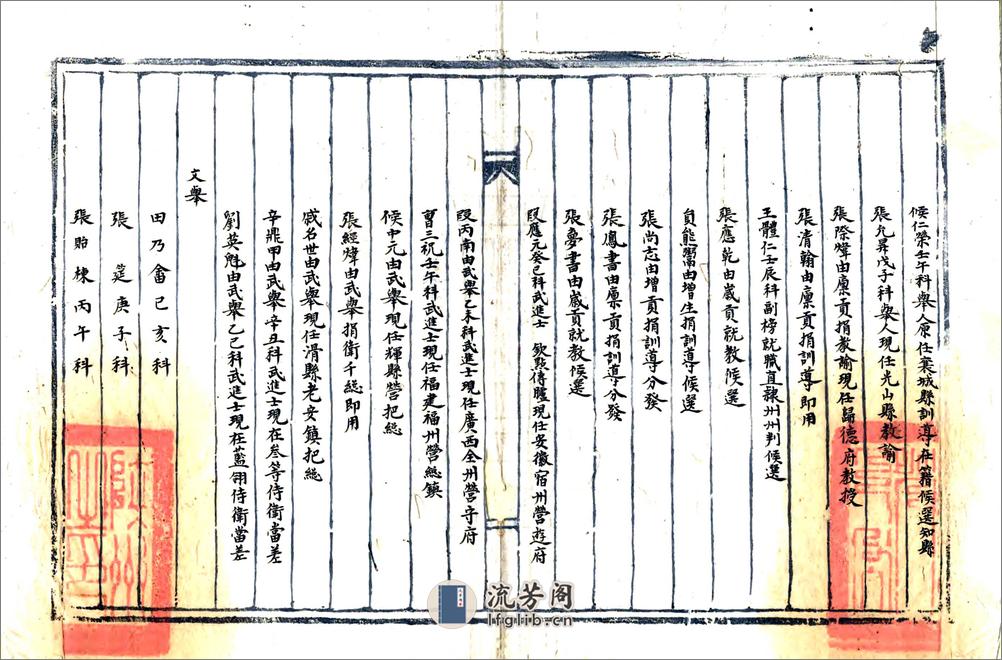 候仁榮壬午科舉人原任襄城縣訓導在籍候選知縣
張允昇戊子科舉人現任光山縣教諭
張際煒由廩貢捐教諭現任歸德府教授
張清翰由廩貢捐訓導即用
王體仁壬辰科副榜就職直隸州州判候選
張應乾由歲貢就教候選
貟能鬻由增生捐訓導候選
張尚志由增貢捐訓導分發
張鳳書由廩貢捐訓導分發
張夢書由歲貢就教候選
段應元癸巳科武進士 欽點傳臚現任安徽宿州營遊府
段丙南由武舉乙未科武進士現任廣西全州營守府
曹三祝壬午科武進士現任福建福州營總鎮
候中元由武舉現任輝縣營把總
張經煒由武舉捐衛千總即用
戚名世由武舉現任滑縣老安鎮把總
辛鼎甲由武舉辛丑科武進士現在叁等侍衛當差
劉英魁由武舉乙巳科武進士現在藍翎侍衛當差
文舉
田乃畬己亥科
張筵庚子科
張貽棟丙午科
流芳阁
lfglib.cn